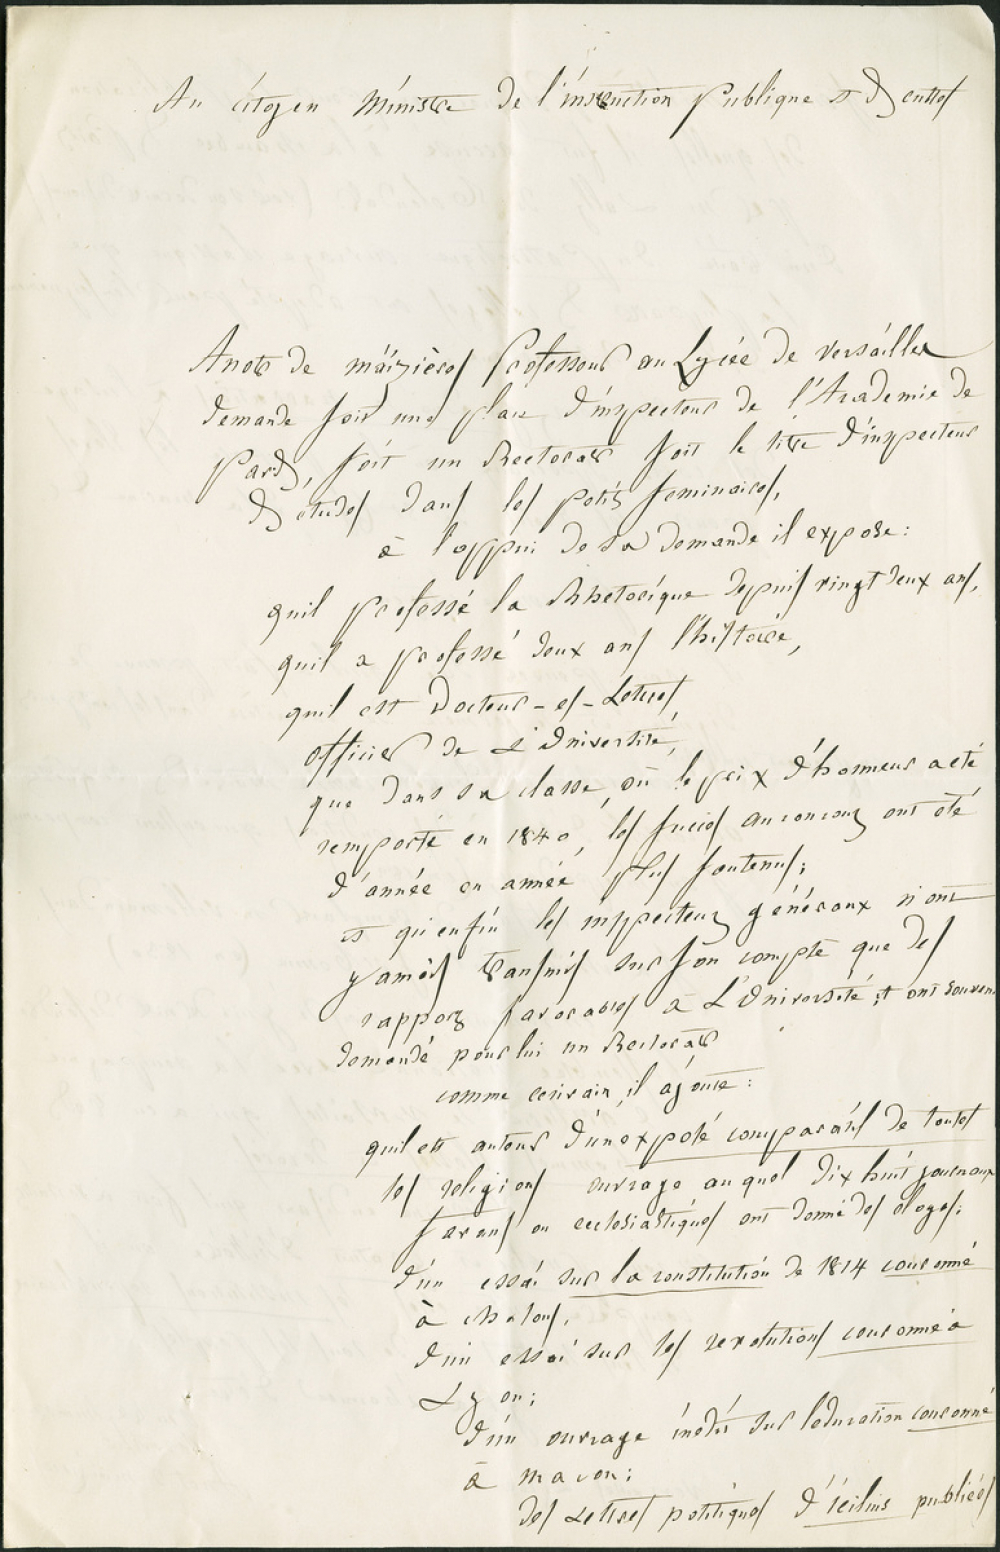 Au citoyen Ministre de l'instruction publique et des cultes
Anot de maizières professeur au Lycée de versailles
demande soit une place d'inspecteur de l'Academie de
paris, soit un Rectorat soit le titre d'inspecteur
des études dans les petits seminaires,
à l'appui de sa demande il expose:
quil professe la Rhetorique depuis vingt deux ans,
quil a professé deux ans l'histoire,
quil est Docteur-es-Lettres
officier de L'Université,
que dans sa classe, où le prix d'honneur a été
remporté en 1840, les succès au concours ont été
d'année en année plus soutenus;
et qu'enfin les inspecteurs généraux n'ont
jamais transmis sur son compte que des
rapports favorables à L'Université, et ont souvent
demandé pour lui un Rectorat
comme ecrivain, il ajoute:
quil est auteur d'un exposé comparatif de toutes
les religions ouvrage auquel dix huit journaux
savans ou ecclesiastiques ont donné des éloges;
d'un essai sur la constitution de 1814 couronné
à chalons,
d'un essai sur les revolutions couronné à
Lyon;
d'un ouvrage inédit sur l'education couronné
à macon;
des Lettres politiques d'icilius publiées